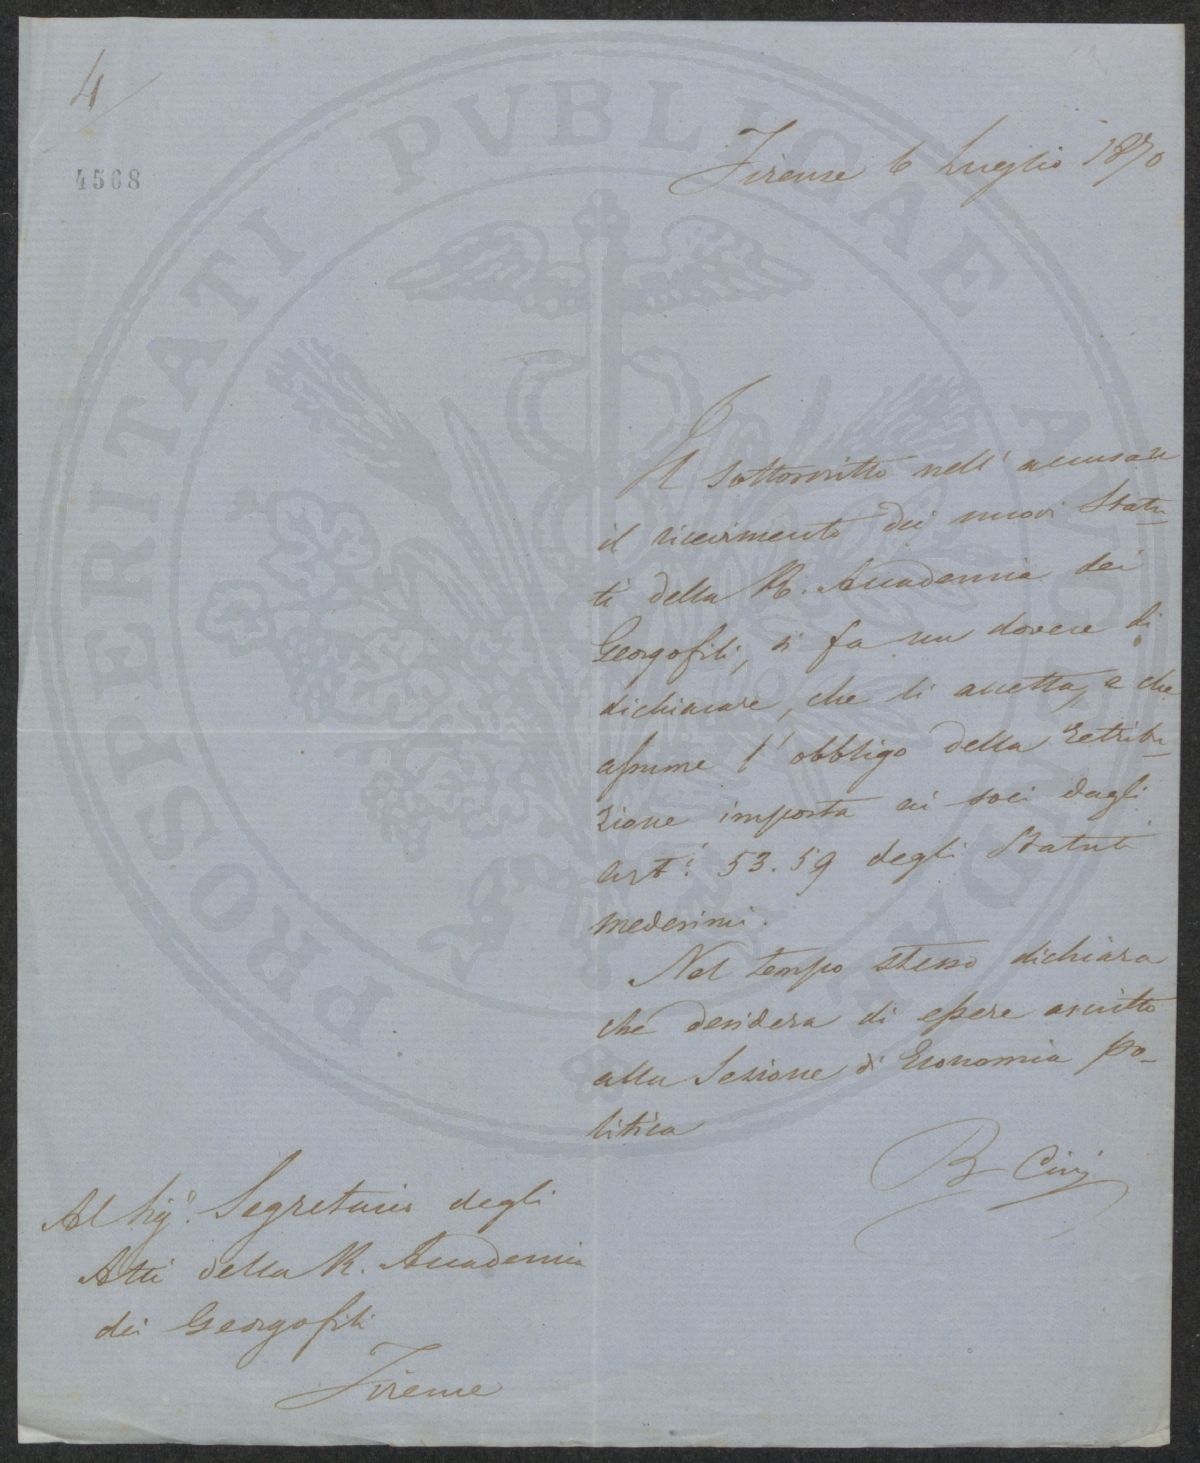 4
4568
Firenze 6 Luglio 1870
Il sottoscritto nell'accusare
il ricevimento dei nuovi Statu-
ti della R. Accademia dei
Georgofili, si fa un dovere di
dichiarare, che li accetta, e che
assume l'obbligo della retribu-
zione imposta ai soci dagli
Arti. 53. 59 degli Statuti
medesimi.
Nel tempo stesso dichiara
che desidera di essere ascritto
alla Sezione di Economia po-
litica
B Cini
Al Sigr. Segretario degli
Atti della R. Accademia
dei Georgofili
Firenze
PROSPERITATI PVBLICAE AVGENDAE